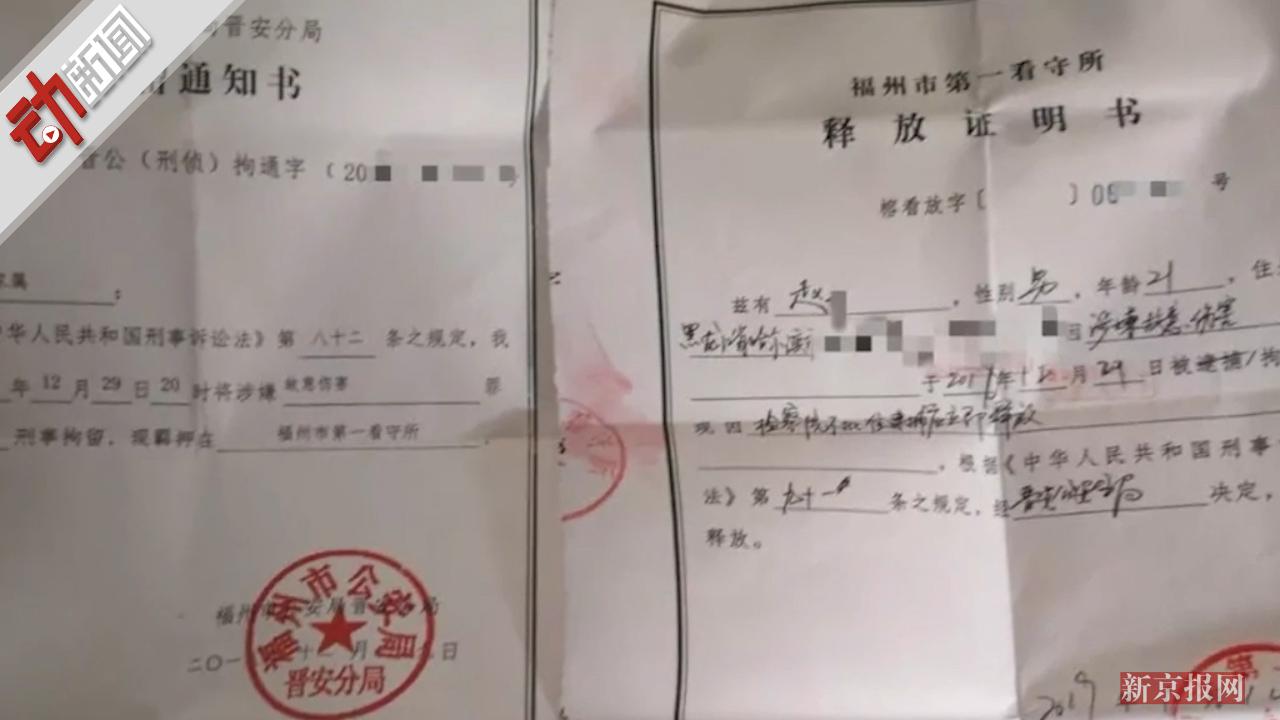 动新闻
晋安分局
通知书
公（刑侦）拘通字（20 号
属
：
中华人民共和国刑事诉讼法》第 八十二 条之规定，我
年12月29日20时将涉嫌 故意伤害 罪
刑事拘留，现羁押在 福州市第一看守所 。
福州市公安局晋安分局
二〇一 十二月 九日
福州市公安局
晋安分局
福州市第一看守所
释放证明书
榕看放字〔 〕06 号
兹有 赵 ，性别 男，年龄 21 ，住
黑龙江省哈尔滨 因涉嫌故意伤害
于 年12月29日被逮捕/拘
现因 检察院不批准逮捕应立即释放
，根据《中华人民共和国刑事
法》第 九十一 条之规定，经 晋安公安分局 决定，
释放。
第
2019年
新京报网